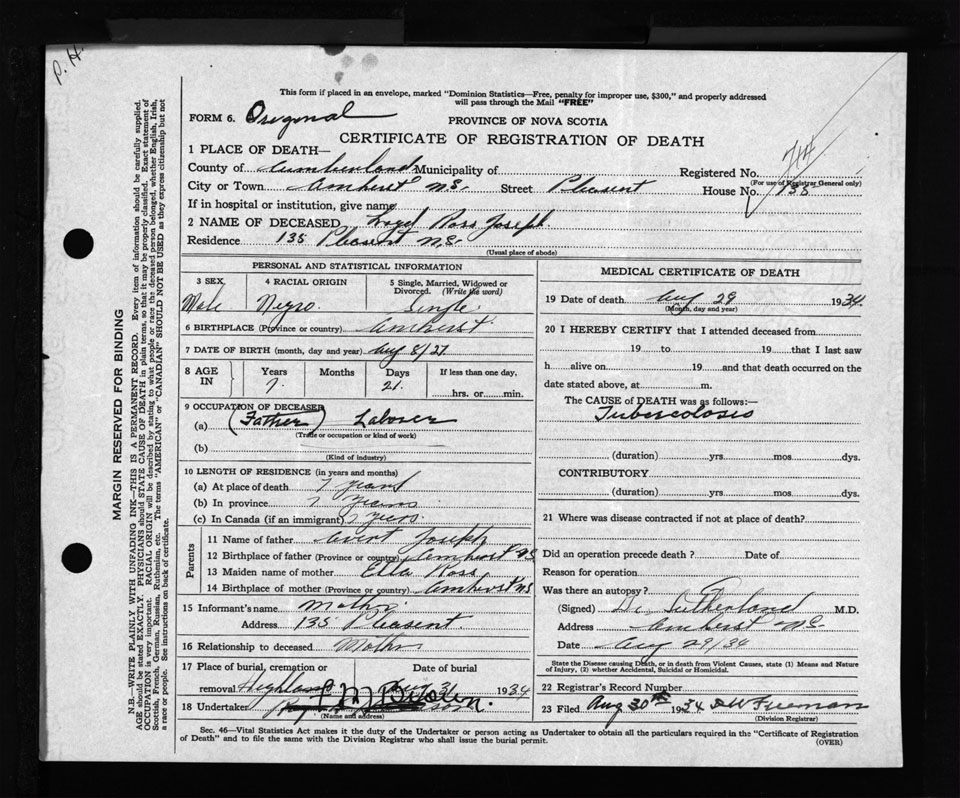 P. H.
This form if placed in an envelope, marked "Dominion Statistics—Free, penalty for improper use, $300," and properly addressed
will pass through the Mail "FREE"
FORM 6. Oregonal PROVINCE OF NOVA SCOTIA
CERTIFICATE OF REGISTRATION OF DEATH
1 PLACE OF DEATH—
County of Cumberland Municipality of Registered No.
(For use of Registrar General only)
City or Town Amherst N.S. Street Pleasent House No. 135
If in hospital or institution, give name
2 NAME OF DECEASED Loyd Ross Joseph.
Residence 135 Pleasent N.S.
(Usual place of abode)
PERSONAL AND STATISTICAL INFORMATION
3 SEX 4 RACIAL ORIGIN 5 Single, Married, Widowed or
Divorced. (Write the word)
Male Negro. Single
6 BIRTHPLACE (Province or country) Amherst
7 DATE OF BIRTH (month, day and year) Aug 8/27
8 AGE IN Years Months Days If less than one day,
7. 21. hrs. or min.
9 OCCUPATION OF DECEASED
(a) (Father) Laborer
(Trade or occupation or kind of work)
(b)
(Kind of industry)
10 LENGTH OF RESIDENCE (in years and months)
(a) At place of death 7 years
(b) In province 7 years
(c) In Canada (if an immigrant) 7 years.
Parents
11 Name of father Joseph
12 Birthplace of father (Province or country) Amherst NS
13 Maiden name of mother Ella Ross
14 Birthplace of mother (Province or country) Amherst NS
15 Informant's name Mother
Address 135 Pleasent.
16 Relationship to deceased Mother
17 Place of burial, cremation or Date of burial
removal Highland 31 1934
18 Undertaker
(Name and address)
MEDICAL CERTIFICATE OF DEATH
19 Date of death Aug 29 1934
(Month, day and year)
20 I HEREBY CERTIFY that I attended deceased from
19 to 19 that I last saw
h alive on 19 and that death occurred on the
date stated above, at m.
The CAUSE of DEATH was as follows:—
Tubercolosis
(duration) yrs. mos. dys.
CONTRIBUTORY
(duration) yrs. mos. dys.
21 Where was disease contracted if not at place of death?
Did an operation precede death? Date of
Reason for operation
Was there an autopsy?
(Signed) Dr Sutherland M.D.
Address Amherst NS
Date Aug 29/34
State the Disease causing Death, or in death from Violent Causes, state (1) Means and Nature
of Injury, (2) whether Accidental, Suicidal or Homicidal.
22 Registrar's Record Number
23 Filed Aug 30th 1934 Freeman
(Division Registrar)
Sec. 46—Vital Statistics Act makes it the duty of the Undertaker or person acting as Undertaker to obtain all the particulars required in the "Certificate of Registration
of Death" and to file the same with the Division Registrar who shall issue the burial permit. (OVER)
MARGIN RESERVED FOR BINDING
N.B.—WRITE PLAINLY WITH UNFADING INK—THIS IS A PERMANENT RECORD. Every item of information should be carefully supplied.
AGE should be stated EXACTLY. PHYSICIANS should STATE CAUSE OF DEATH in plain terms, so that it may be properly classified. Exact statement of
OCCUPATION is very important. RACIAL ORIGIN will be described by stating to what people or race the deceased person belonged, whether English, Irish,
Scottish, French, German, Russian, Ruthenian, etc. The terms "AMERICAN" or "CANADIAN" SHOULD NOT BE USED as they express citizenship but not
a race or people. See instructions on back of certificate.